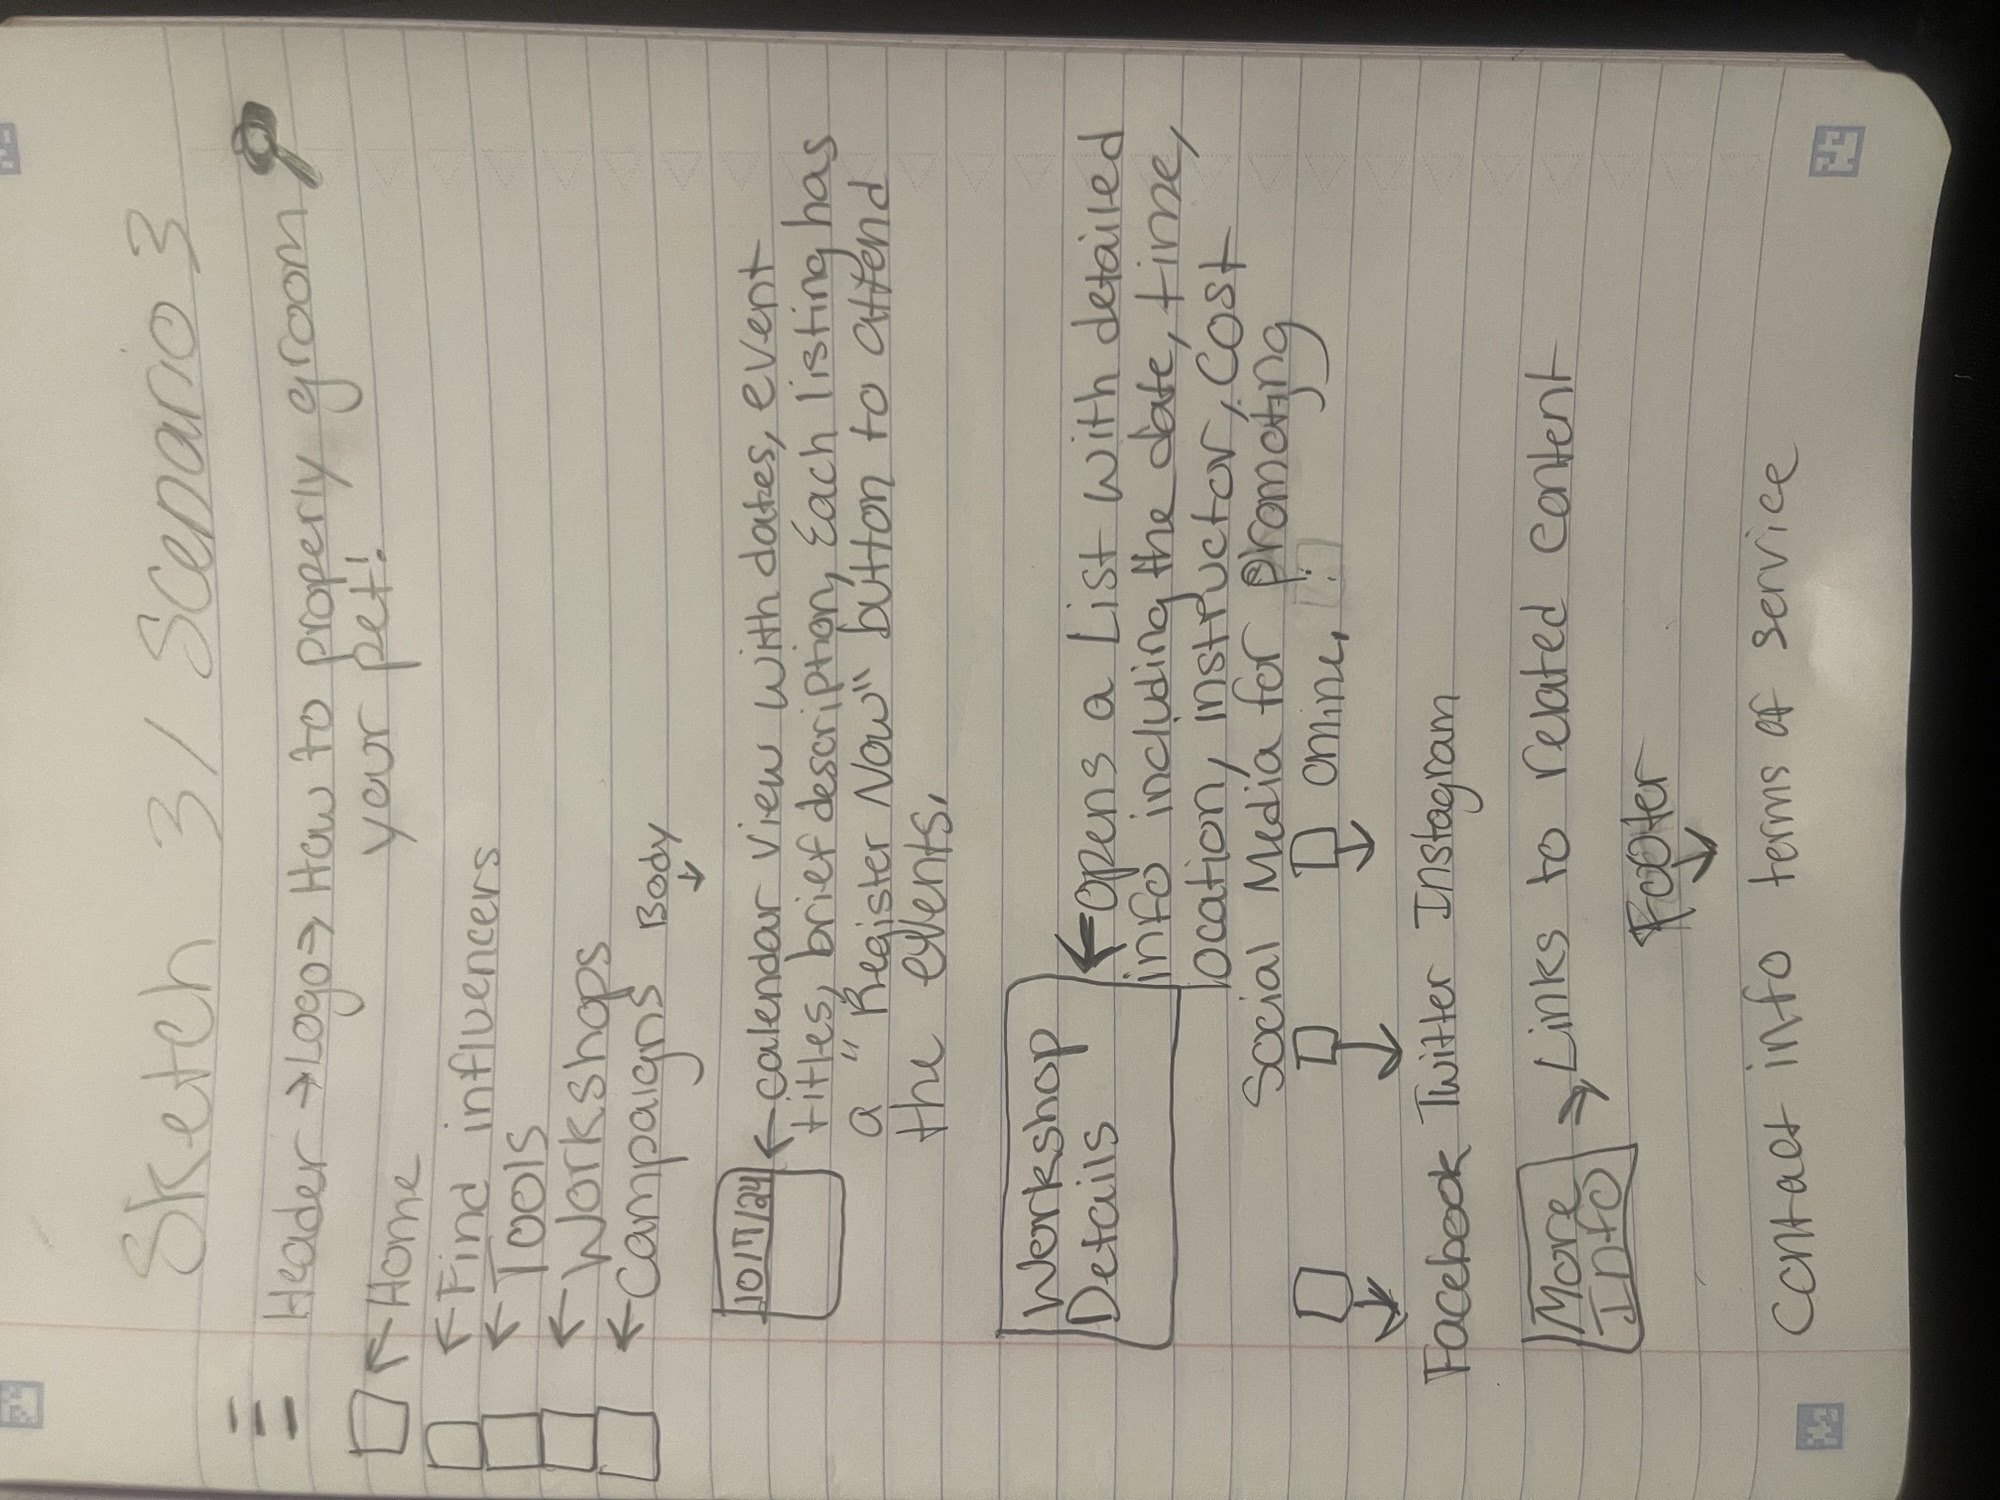 Sketch 3/ Scenario 3
Header →Logo→ How to properly groom
your pet!
←Home
←Find influencers
←Tools
←Workshops
←Campaigns Body
↓
10/7/24 ←calendar view with dates, event
titles, brief description, Each listing has
a "Register Now" button to attend
the events.
Workshop
Details ←opens a List with detailed
info including the date, time,
location, instructor, cost
Social Media for promoting
online.
Facebook Twitter Instagram
More
Info → Links to related content
Footer
↓
Contact info terms of service